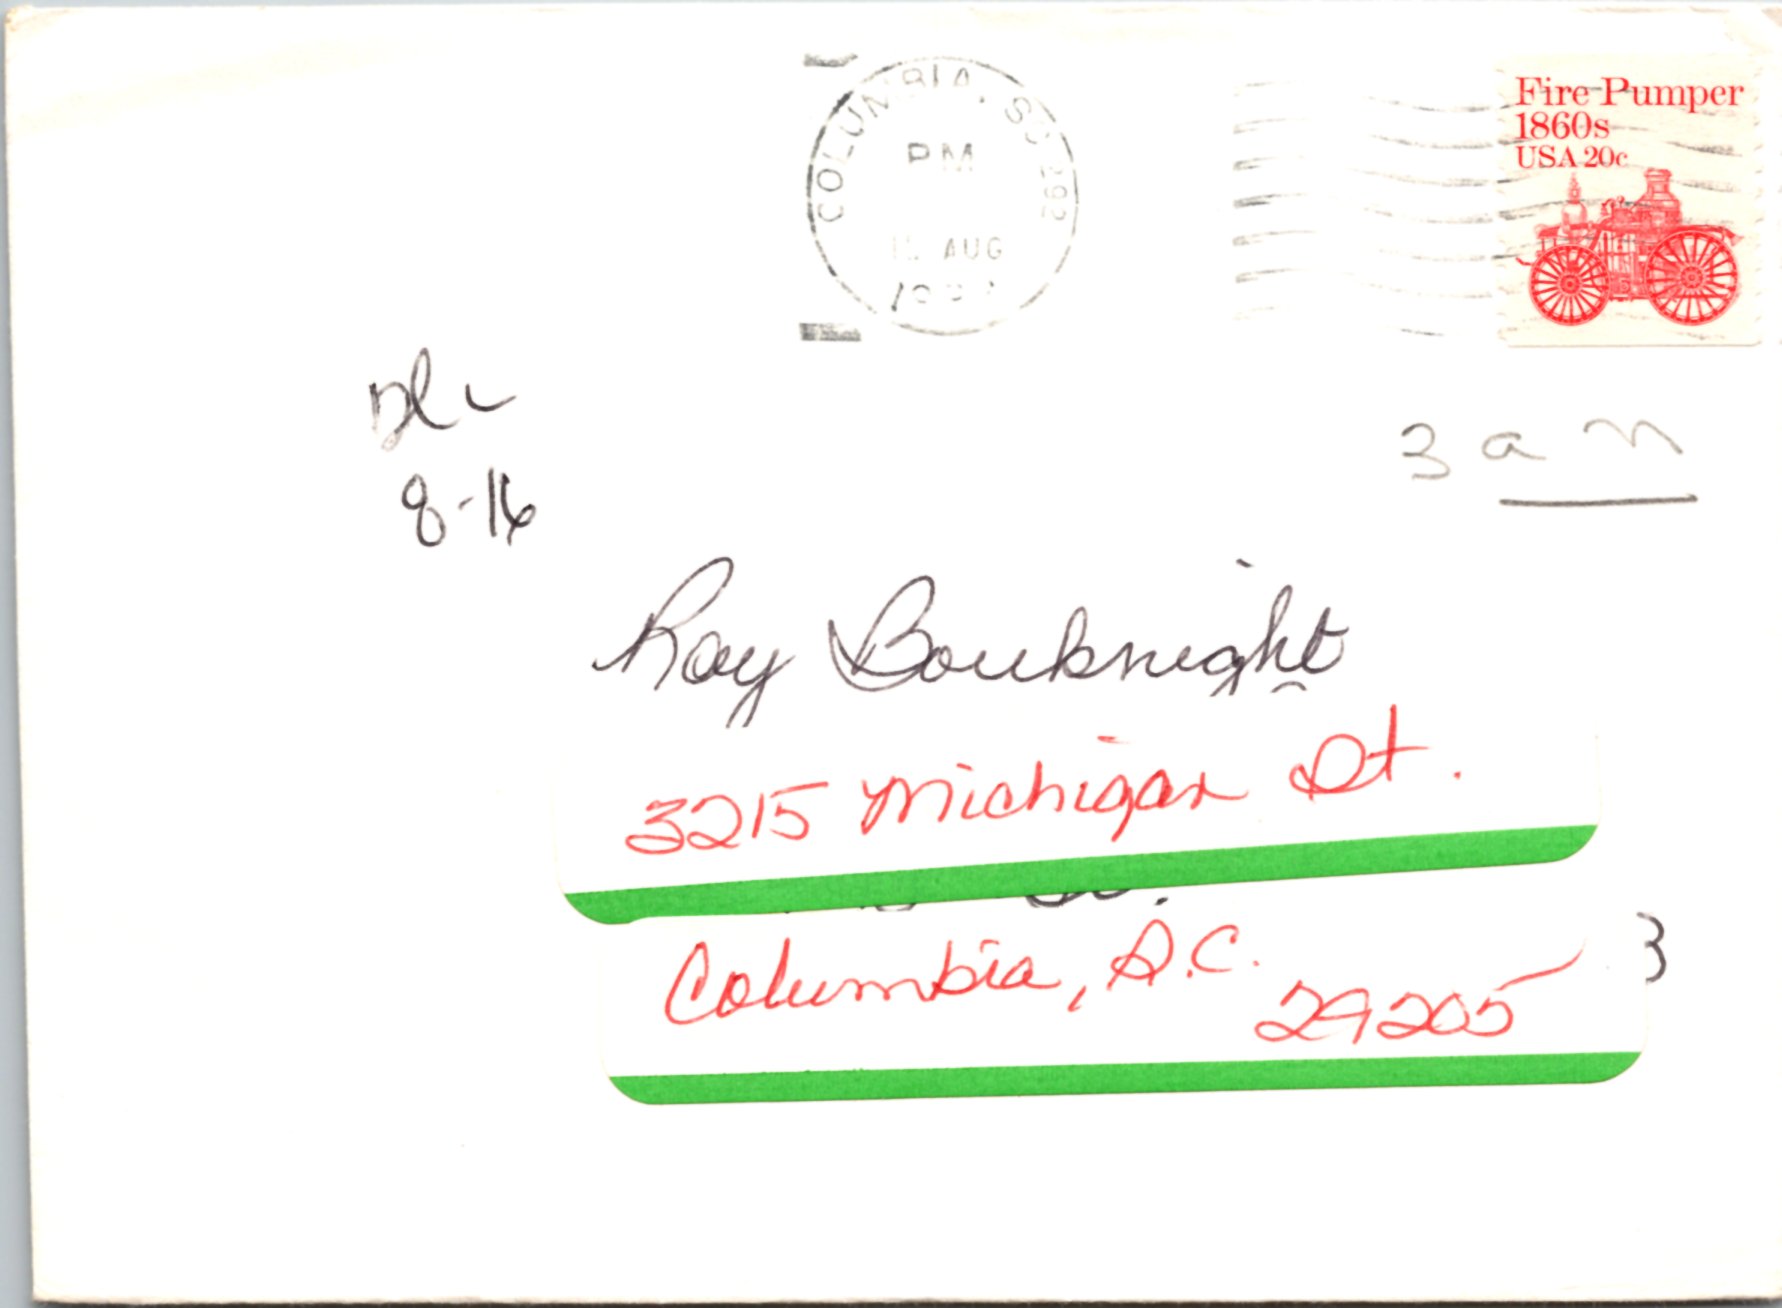 COLUMBIA, SC 292
PM
AUG
Fire Pumper
1860s
USA 20c
8-16
3 a m
Roy Bouknight
3215 Michigan St.
Columbia, S.C.
29205
3